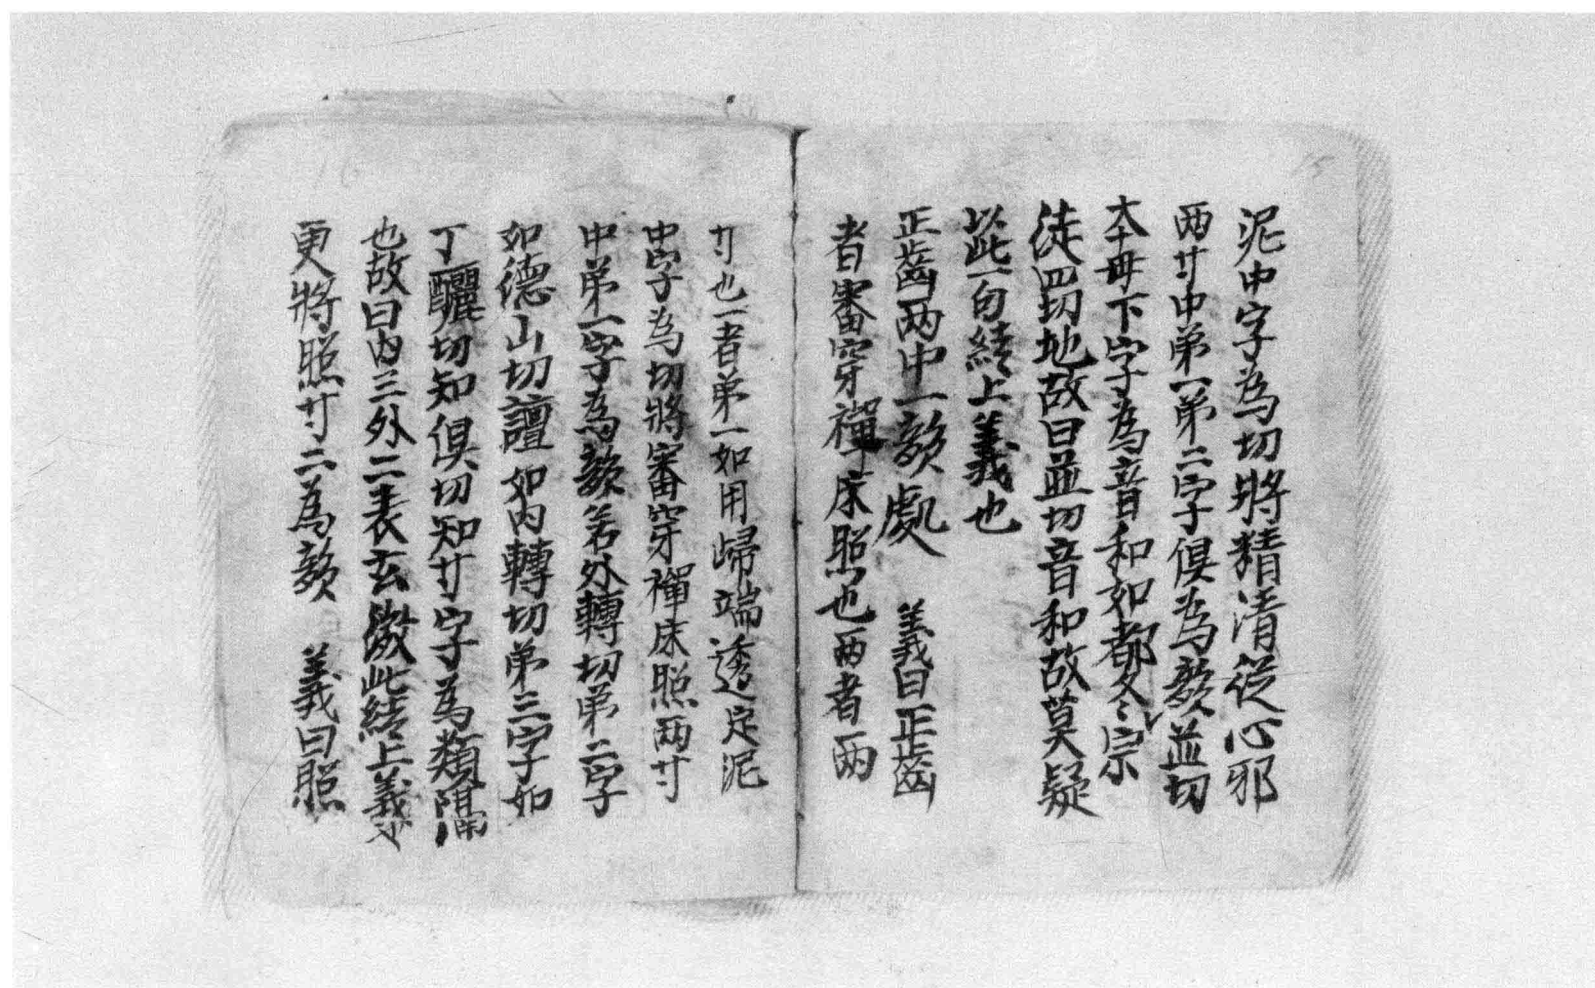 泥中字為切將精清從心邪
两等中弟一弟二字俱為韻並切
本母下字為音和如都冬宗
徒四切地故曰並切音和故莫疑
以此一句結上義也
正齒两中一韻處 義曰正齒
者審穿禪床照也两者两
等也一者弟一如用歸端透定泥
中字為切將審穿禪床照两等
中弟一字為韻若外轉切弟二字
如德山切譠如內轉切弟三字如
丁醨切知俱切知等字為類隔
也故曰內三外二表玄微此結上義尔
更將照等二為韻 義曰照